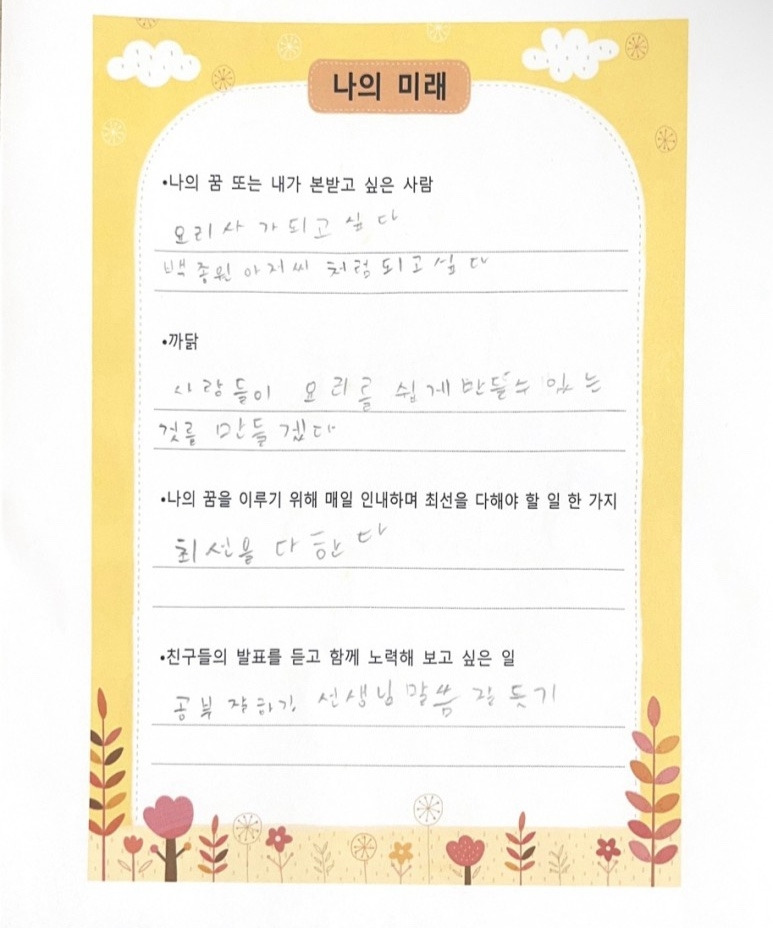 나의 미래
•나의 꿈 또는 내가 본받고 싶은 사람
요리사가되고싶다
백종원아저씨 처럼되고싶다
•까닭
사람들이 요리를 쉽게만들수 있는
것를 만들겠다
•나의 꿈을 이루기 위해 매일 인내하며 최선을 다해야 할 일 한 가지
최선을 다한다
•친구들의 발표를 듣고 함께 노력해 보고 싶은 일
공부 잘하기 선생님말씀 잘 듯기